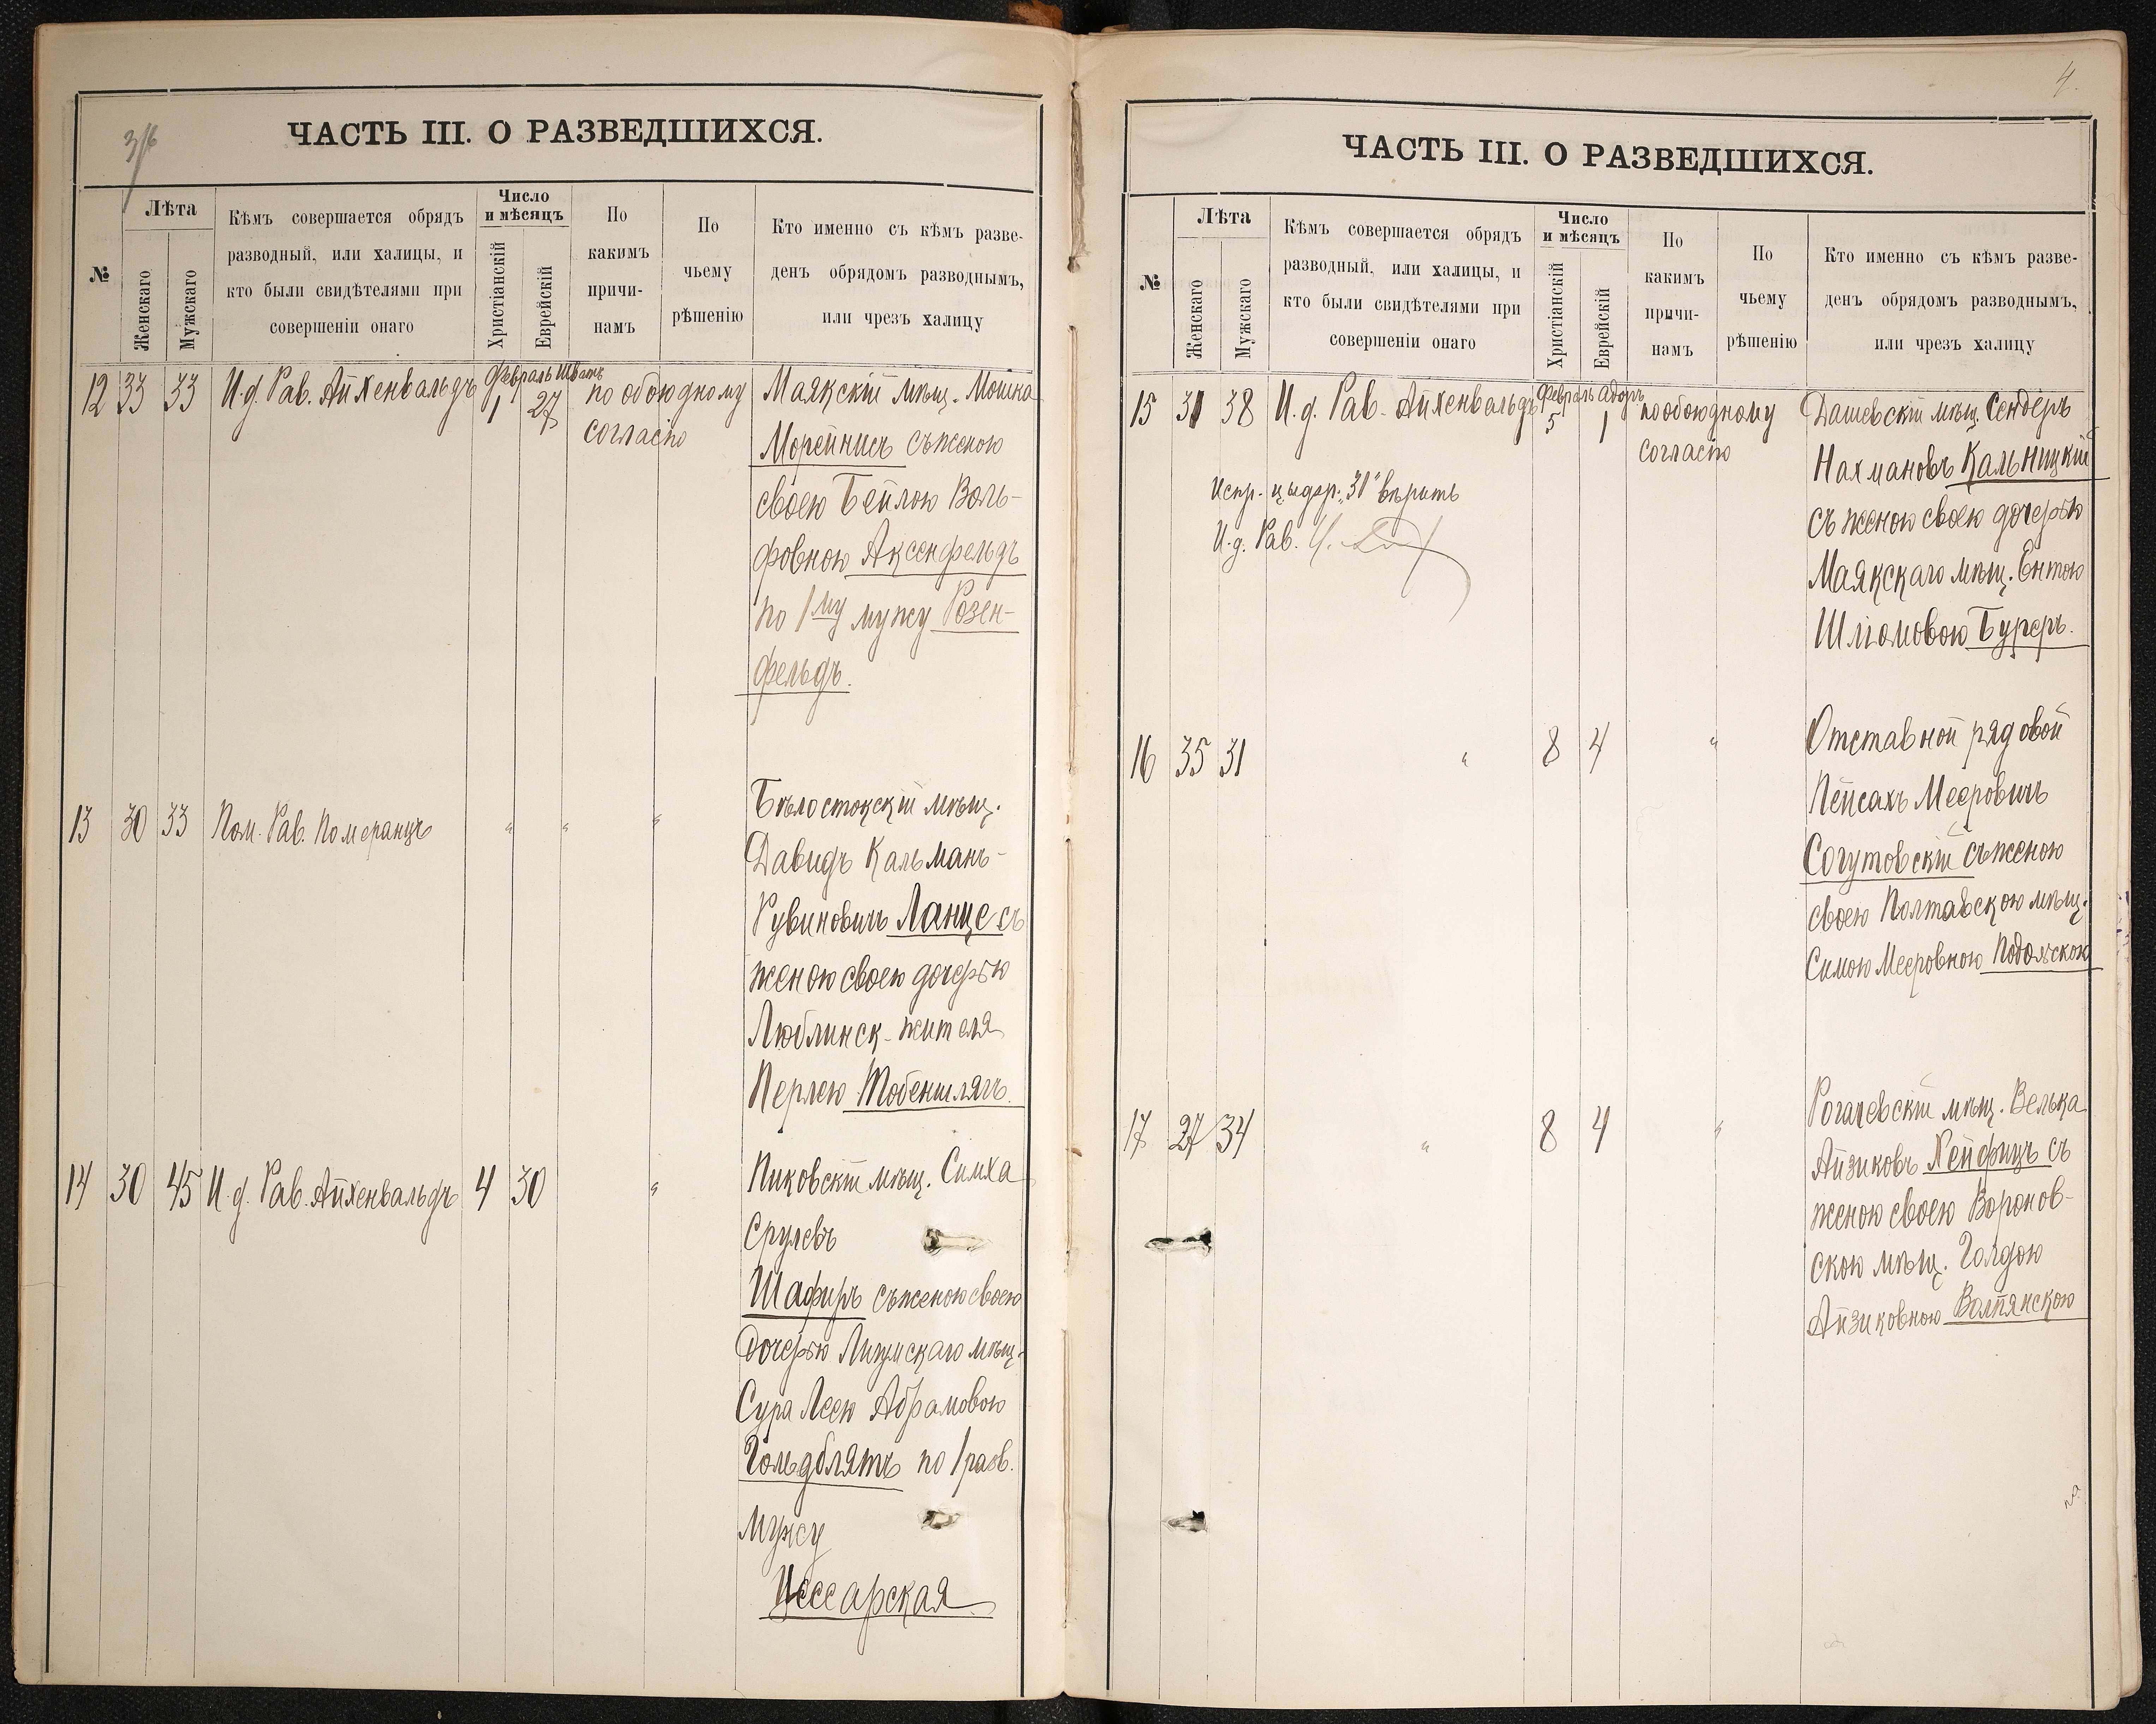 3/16
ЧАСТЬ III. О РАЗВЕДШИХСЯ.
№
Лѣта
Женскаго
Мужскаго
Кѣмъ совершается обрядъ
разводный, или халицы, и
кто были свидѣтелями при
совершеніи онаго
Число
и мѣсяцъ
Христіанскій
Еврейскій
По
какимъ
причи-
намъ
По
чьему
рѣшенію
Кто именно съ кѣмъ разве-
денъ обрядомъ разводнымъ,
или чрезъ халицу
Февраль Шватъ
12 33 33 И.д. Рав. Айхенвальдъ 1 27 по обоюдному
согласію
Маякскій мѣщ. Мошка
Морейнисъ съ женою
своею Бейлою Воль-
фовною Аксенфельдъ
по 1му мужу Розен-
фельдъ.
13 30 33 Пом. Рав. Померанцъ " " "
Бѣлостокскій мѣщ.
Давидъ Кальманъ-
Рувиновичъ Ланце съ
женою своею дочерью
Люблинск. жителя
Перлею Тобеншлягъ.
14 30 45 И.д. Рав. Айхенвальдъ 4 30 "
Пиковскій мѣщ. Симха
Срулевъ
Шафиръ съ женою своею
дочерью мѣщ.
Сура Леею Абрамовою
Гольдблятъ по 1 разв.
мужу
Цессарская
4.
ЧАСТЬ III. О РАЗВЕДШИХСЯ.
№
Лѣта
Женскаго
Мужскаго
Кѣмъ совершается обрядъ
разводный, или халицы, и
кто были свидѣтелями при
совершеніи онаго
Число
и мѣсяцъ
Христіанскій
Еврейскій
По
какимъ
причи-
намъ
По
чьему
рѣшенію
Кто именно съ кѣмъ разве-
денъ обрядомъ разводнымъ,
или чрезъ халицу
Февраль Адоръ
15 31 38 И.д. Рав. Айхенвальдъ 5 1 по обоюдному
согласію
Испр. цыфр. „31" вѣрить
И.д. Рав.
Дашевскій мѣщ. Сендеръ
Нахмановъ Кальницкій
съ женою своею дочерью
Маякскаго мѣщ. Ентою
Шліомовою Буреръ.
16 35 31 " 8 4 "
Отставной рядовой
Пейсахъ Мееровичъ
Согутовскій съ женою
своею Полтавскою мѣщ.
Симою Мееровною Подольскою
17 27 34 " 8 4 "
Рогачевскій мѣщ. Велька
Айзиковъ Хейфицъ съ
женою своею Воронов-
скою мѣщ. Голдою
Айзиковною Волпянскою